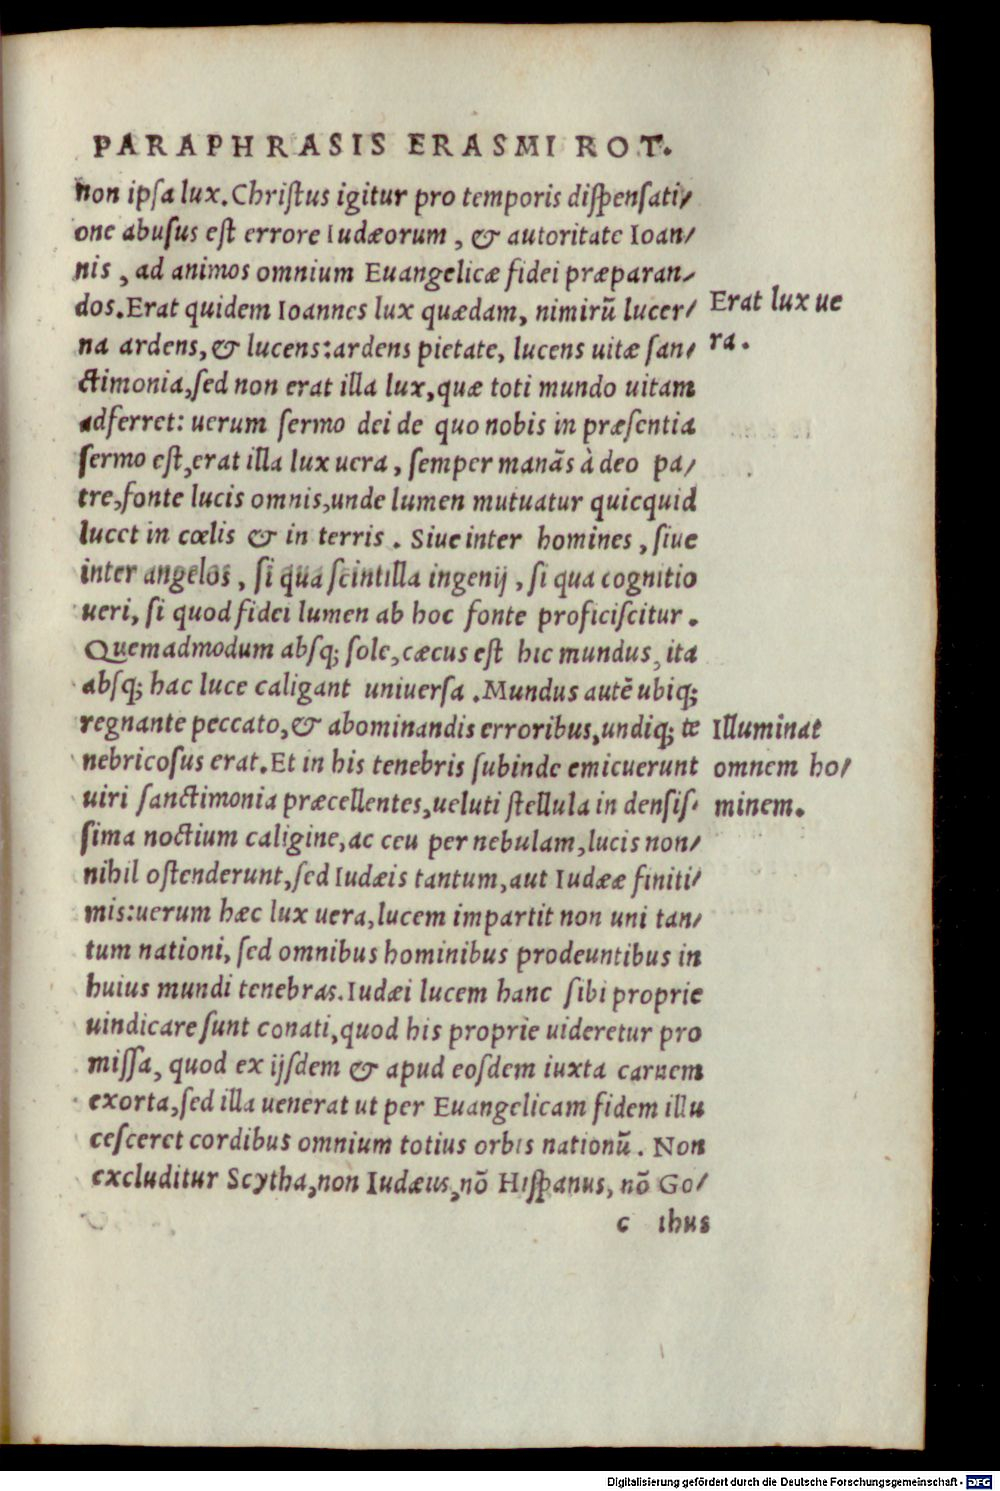 PARAPHRASIS ERASMI ROT.
non ipsa lux. Christus igitur pro temporis dispensati/
one abusus est errore Iudæorum, & autoritate Ioan/
nis, ad animos omnium Euangelicæ fidei præparan/
dos. Erat quidem Ioannes lux quædam, nimirũ lucer/
na ardens, & lucens: ardens pietate, lucens uitæ san/
ctimonia, sed non erat illa lux, quæ toti mundo uitam
adferret: uerum sermo dei de quo nobis in præsentia
sermo est, erat illa lux uera, semper manãs à deo pa/
tre, fonte lucis omnis, unde lumen mutuatur quicquid
lucet in cœlis & in terris. Siue inter homines, siue
inter angelos, si qua scintilla ingenij, si qua cognitio
ueri, si quod fidei lumen ab hoc fonte proficiscitur.
Quemadmodum absq; sole, cæcus est hic mundus, ita
absq; hac luce caligant uniuersa. Mundus autẽ ubiq;
regnante peccato, & abominandis erroribus, undiq; te
nebricosus erat. Et in his tenebris subinde emicuerunt
uiri sanctimonia præcellentes, ueluti stellula in densis/
sima noctium caligine, ac ceu per nebulam, lucis non/
nihil ostenderunt, sed Iudæis tantum, aut Iudææ finiti/
mis: uerum hæc lux uera, lucem impartit non uni tan/
tum nationi, sed omnibus hominibus prodeuntibus in
huius mundi tenebras. Iudæi lucem hanc sibi proprie
uindicare sunt conati, quod his proprie uideretur pro
missa, quod ex ijsdem & apud eosdem iuxta carnem
exorta, sed illa uenerat ut per Euangelicam fidem illu
cesceret cordibus omnium totius orbis nationũ. Non
excluditur Scytha, non Iudæus, nõ Hispanus, nõ Go/
c ihus
Erat lux ue
ra.
Illuminat
omnem ho/
minem.
Digitalisierung gefördert durch die Deutsche Forschungsgemeinschaft - DFG